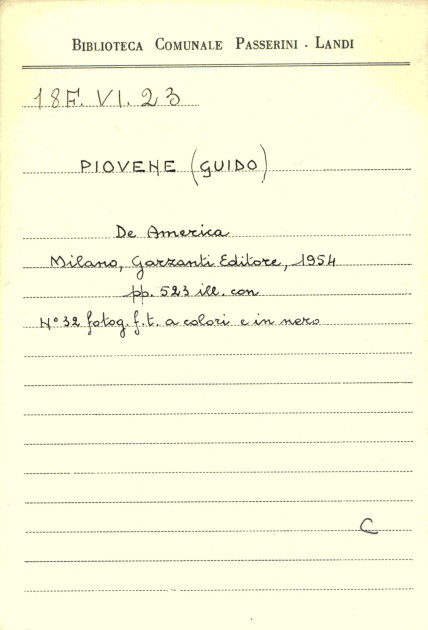 BIBLIOTECA COMUNALE PASSERINI - LANDI
18F. VI. 23
PIOVENE (GUIDO)
De America
Milano, Garzanti Editore, 1954
pp. 523 ill. con
N° 32 fotog. f. t. a colori e in nero
C